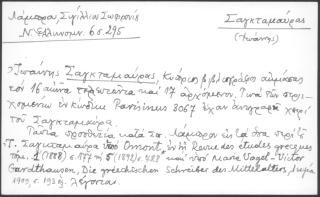 Λάμπρου, Σπυρίδων Σωφρονίδ
Ν. Ελληνομν. 6 σ. 295
Σαγκταμαύρας
(Ἰωάννης)
Ἰωάννης Σαγκταμαύρας, Κύπριος βιβλιογράφος ἀκμάσας
τον 16 αιῶνα τελευτῶντα καὶ 17 ἀρχόμενον. Τινὰ τῶν περιε-
χομένων ἐν κώδικι Parisinus 3067 εἶχον ἀντιγραφῆ χειρὶ
τοῦ Σαγκταμαύρα.
Ταῦτα προσθετέα κατὰ Σπ. Λάμπρον εἰς τὰ ὅσα περὶ τοῦ
Ἰ. Σαγκταμαύρα ὑπὸ Omont ἐν τῇ Revue des études grecques
τόμ. 1 (1888) σ. 177 5 (1892) σ. 428 καὶ ὑπὸ Marie Vogel - Victor
Gardthausen, Die griechischen Schreiber des Mittelalters, Λειψία
1909, σ. 193 ἑξ. λέγονται.